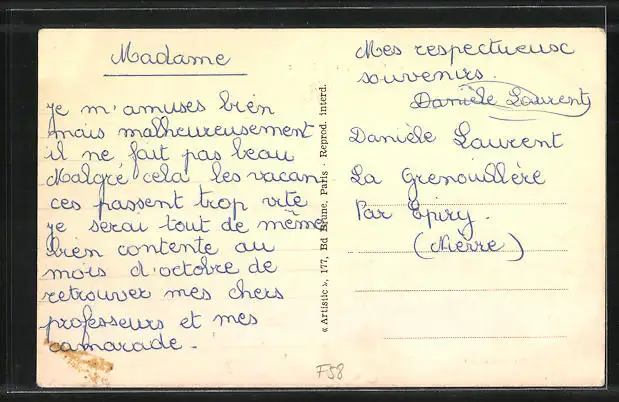 Madame
je m'amuses bien
mais malheureusement
il ne fait pas beau
Malgré cela les vacan
ces passent trop vite
je serai tout de même
bien contente au
mois d'octobre de
retrouver mes chers
professeurs et mes
camarade.
« Artistic », 177, Bd Brune, Paris - Reprod. interd.
Mes respectueusc
souvenirs.
Danièle Laurent
Danièle Laurent
La Grenouillère
Par Epiry.
(Nièvre)
F58